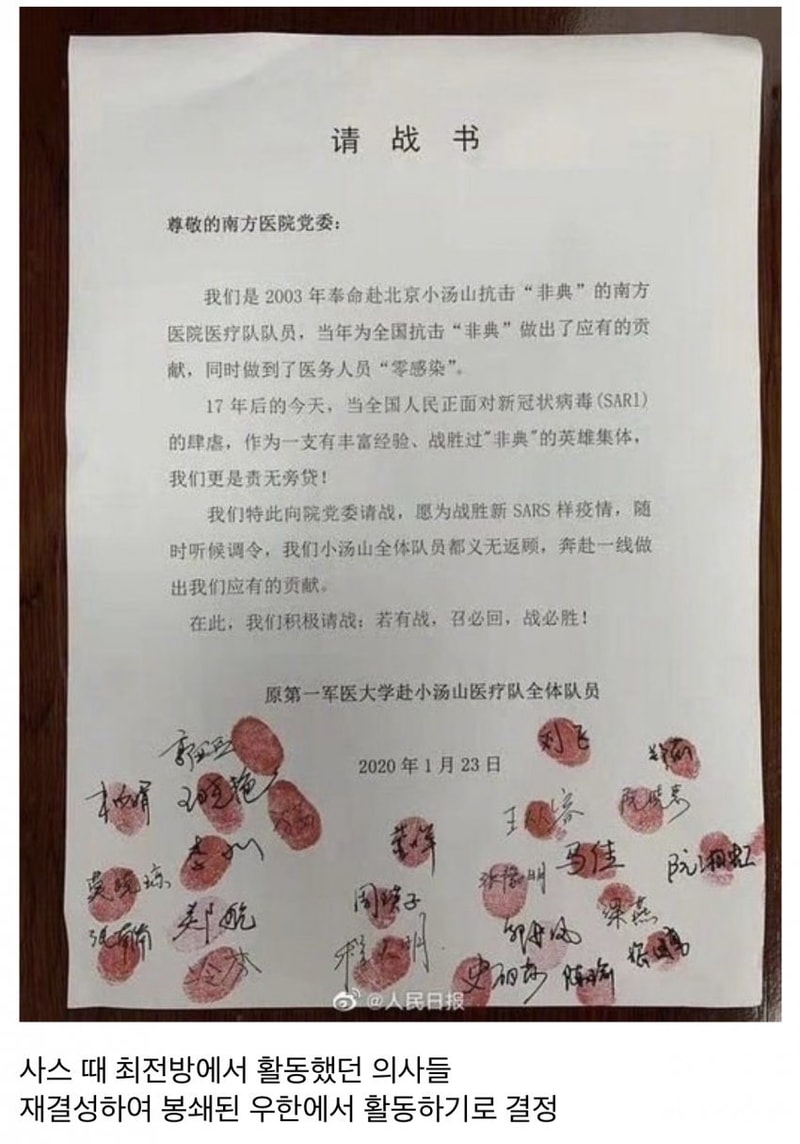 请战书
尊敬的南方医院党委：
我们是2003年奉命赴北京小汤山抗击“非典”的南方
医院医疗队队员，当年为全国抗击“非典”做出了应有的贡
献，同时做到了医务人员“零感染”。
17年后的今天，当全国人民正面对新冠状病毒(SARI)
的肆虐，作为一支有丰富经验、战胜过"非典"的英雄集体，
我们更是责无旁贷！
我们特此向院党委请战，愿为战胜新SARS样疫情，随
时听候调令，我们小汤山全体队员都义无返顾，奔赴一线做
出我们应有的贡献。
在此，我们积极请战：若有战，召必回，战必胜！
原第一军医大学赴小汤山医疗队全体队员
刘飞
2020年1月23日
马佳
@人民日报
사스 때 최전방에서 활동했던 의사들
재결성하여 봉쇄된 우한에서 활동하기로 결정